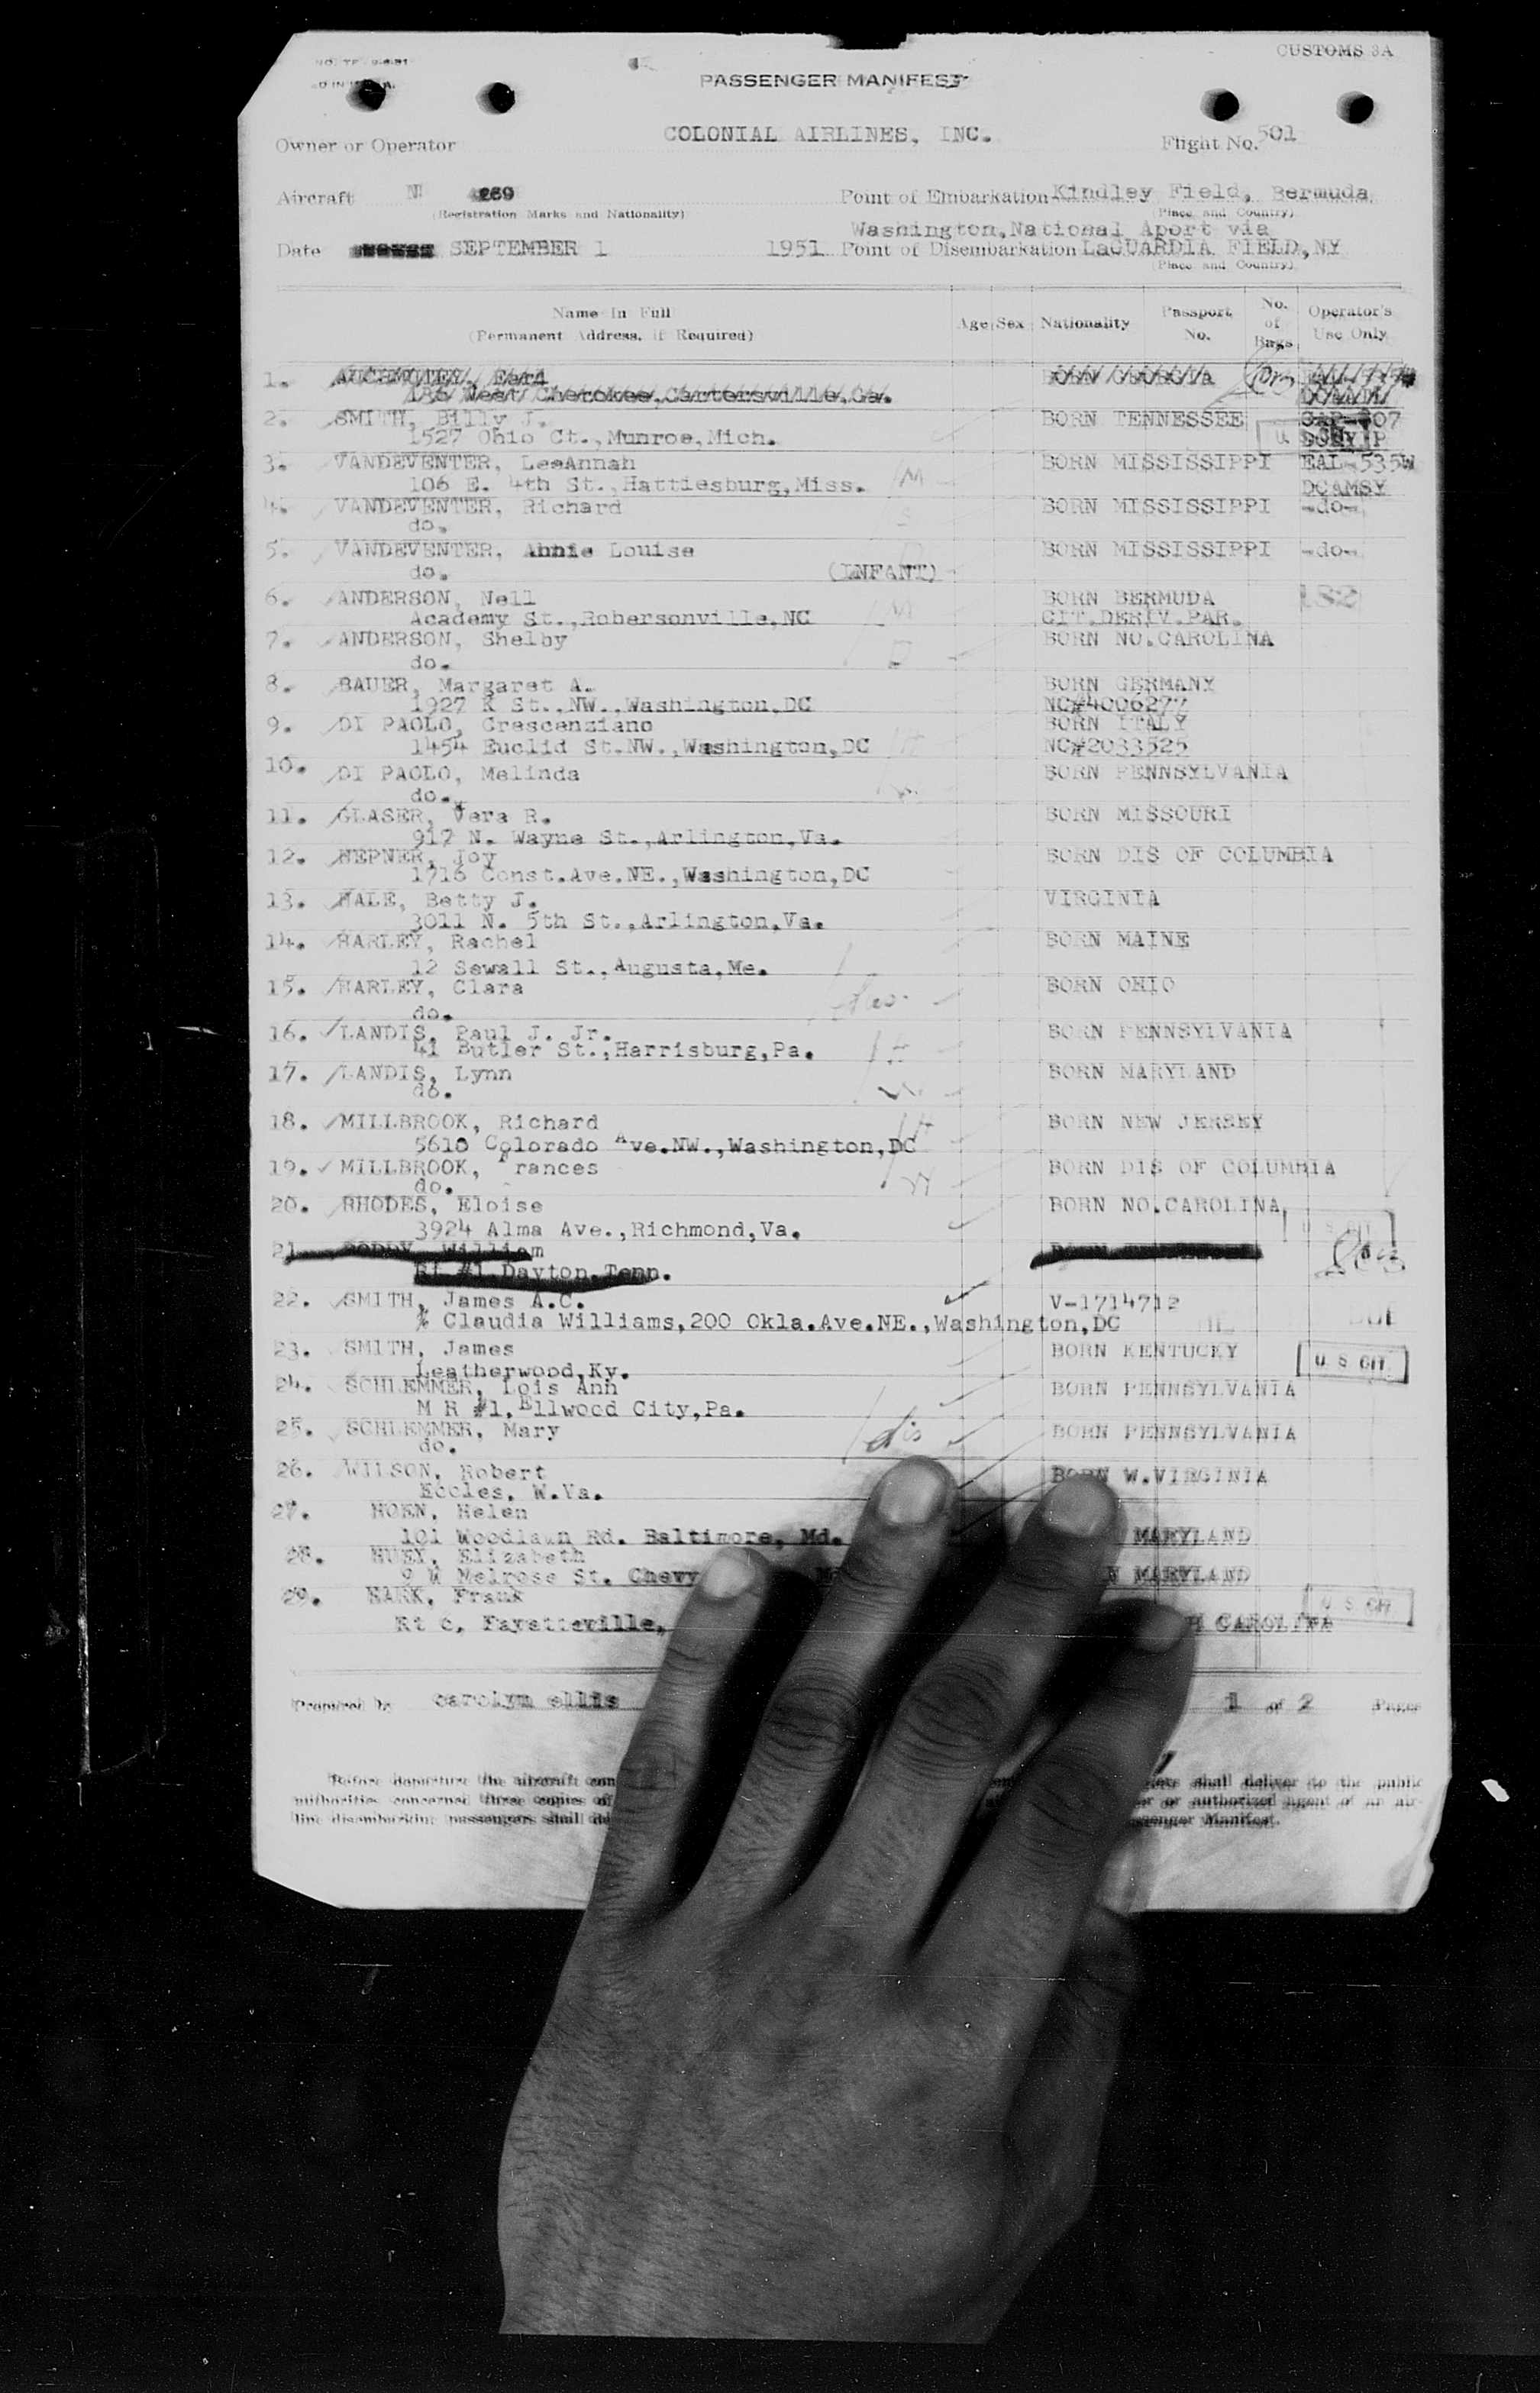 CUSTOMS 3A
PASSENGER MANIFEST
Owner or Operator COLONIAL AIRLINES, INC. Flight No. 501
Aircraft N 269 Point of Embarkation Kindley Field, Bermuda
(Registration Marks and Nationality) (Place and Country)
Washington,National Aport via
Date SEPTEMBER 1 1951 Point of Disembarkation LaGUARDIA FIELD,NY
(Place and Country)
Name In Full (Permanent Address, If Required) Age Sex Nationality Passport No. No. of Bags Operator's Use Only
1. Earl
West Cherokee,Cartersville,Ga.
2. SMITH, Billy J. BORN TENNESSEE
1527 Ohio Ct.,Munroe,Mich.
3. VANDEVENTER, LeeAnnah BORN MISSISSIPPI EAL-535W
106 E. 4th St.,Hattiesburg,Miss. M DCAMSY
4. VANDEVENTER, Richard BORN MISSISSIPPI -do-
do.
5. VANDEVENTER, Annie Louise BORN MISSISSIPPI -do-
do. (INFANT)
6. ANDERSON, Nell BORN BERMUDA
Academy St.,Robersonville,NC M CIT.DERIV.PAR.
7. ANDERSON, Shelby BORN NO.CAROLINA
do.
8. BAUER, Margaret A. BORN GERMANY
1927 K St.,NW.,Washington,DC NC#4006277
9. DI PAOLO, Crescenziano BORN ITALY
1454 Euclid St.NW.,Washington,DC H NC#2033525
10. DI PAOLO, Melinda BORN PENNSYLVANIA
do.
11. GLASER, Vera R. BORN MISSOURI
917 N. Wayne St.,Arlington,Va.
12. HEPNER, Joy BORN DIS OF COLUMBIA
1716 Const.Ave.NE.,Washington,DC
13. HALE, Betty J. VIRGINIA
3011 N. 5th St.,Arlington,Va.
14. HARLEY, Rachel BORN MAINE
12 Sewall St.,Augusta,Me.
15. HARLEY, Clara BORN OHIO
do.
16. LANDIS, Paul J. Jr. BORN PENNSYLVANIA
41 Butler St.,Harrisburg,Pa. H
17. LANDIS, Lynn BORN MARYLAND
do.
18. MILLBROOK, Richard BORN NEW JERSEY
5610 Colorado Ave.NW.,Washington,DC H
19. MILLBROOK, Frances BORN DIS OF COLUMBIA
do. W
20. RHODES, Eloise BORN NO.CAROLINA
3924 Alma Ave.,Richmond,Va. U S CIT
21 William
Rt #1,Dayton,Tenn.
22. SMITH, James A.C. V-1714712
% Claudia Williams,200 Okla.Ave.NE.,Washington,DC
23. SMITH, James BORN KENTUCKY U S CIT
Leatherwood,Ky.
24. SCHLEMMER, Lois Ann BORN PENNSYLVANIA
M R #1,Ellwood City,Pa.
25. SCHLEMMER, Mary BORN PENNSYLVANIA
do. dis
26. WILSON, Robert BORN W.VIRGINIA
Eccles, W.Va.
27. HOEN, Helen
101 Woodlawn Rd. Baltimore, Md. MARYLAND
28. HUEY, Elizabeth
9 W Melrose St. Chevy MARYLAND
29. HARK, Frank U S CIT
Rt 6, Fayetteville, CAROLINA
Prepared by carolym ellis 1 of 2 Pages
Before departure the aircraft shall deliver to the public
authorities concerned three copies of or authorized agent of an air-
line disembarking passengers shall Manifest.